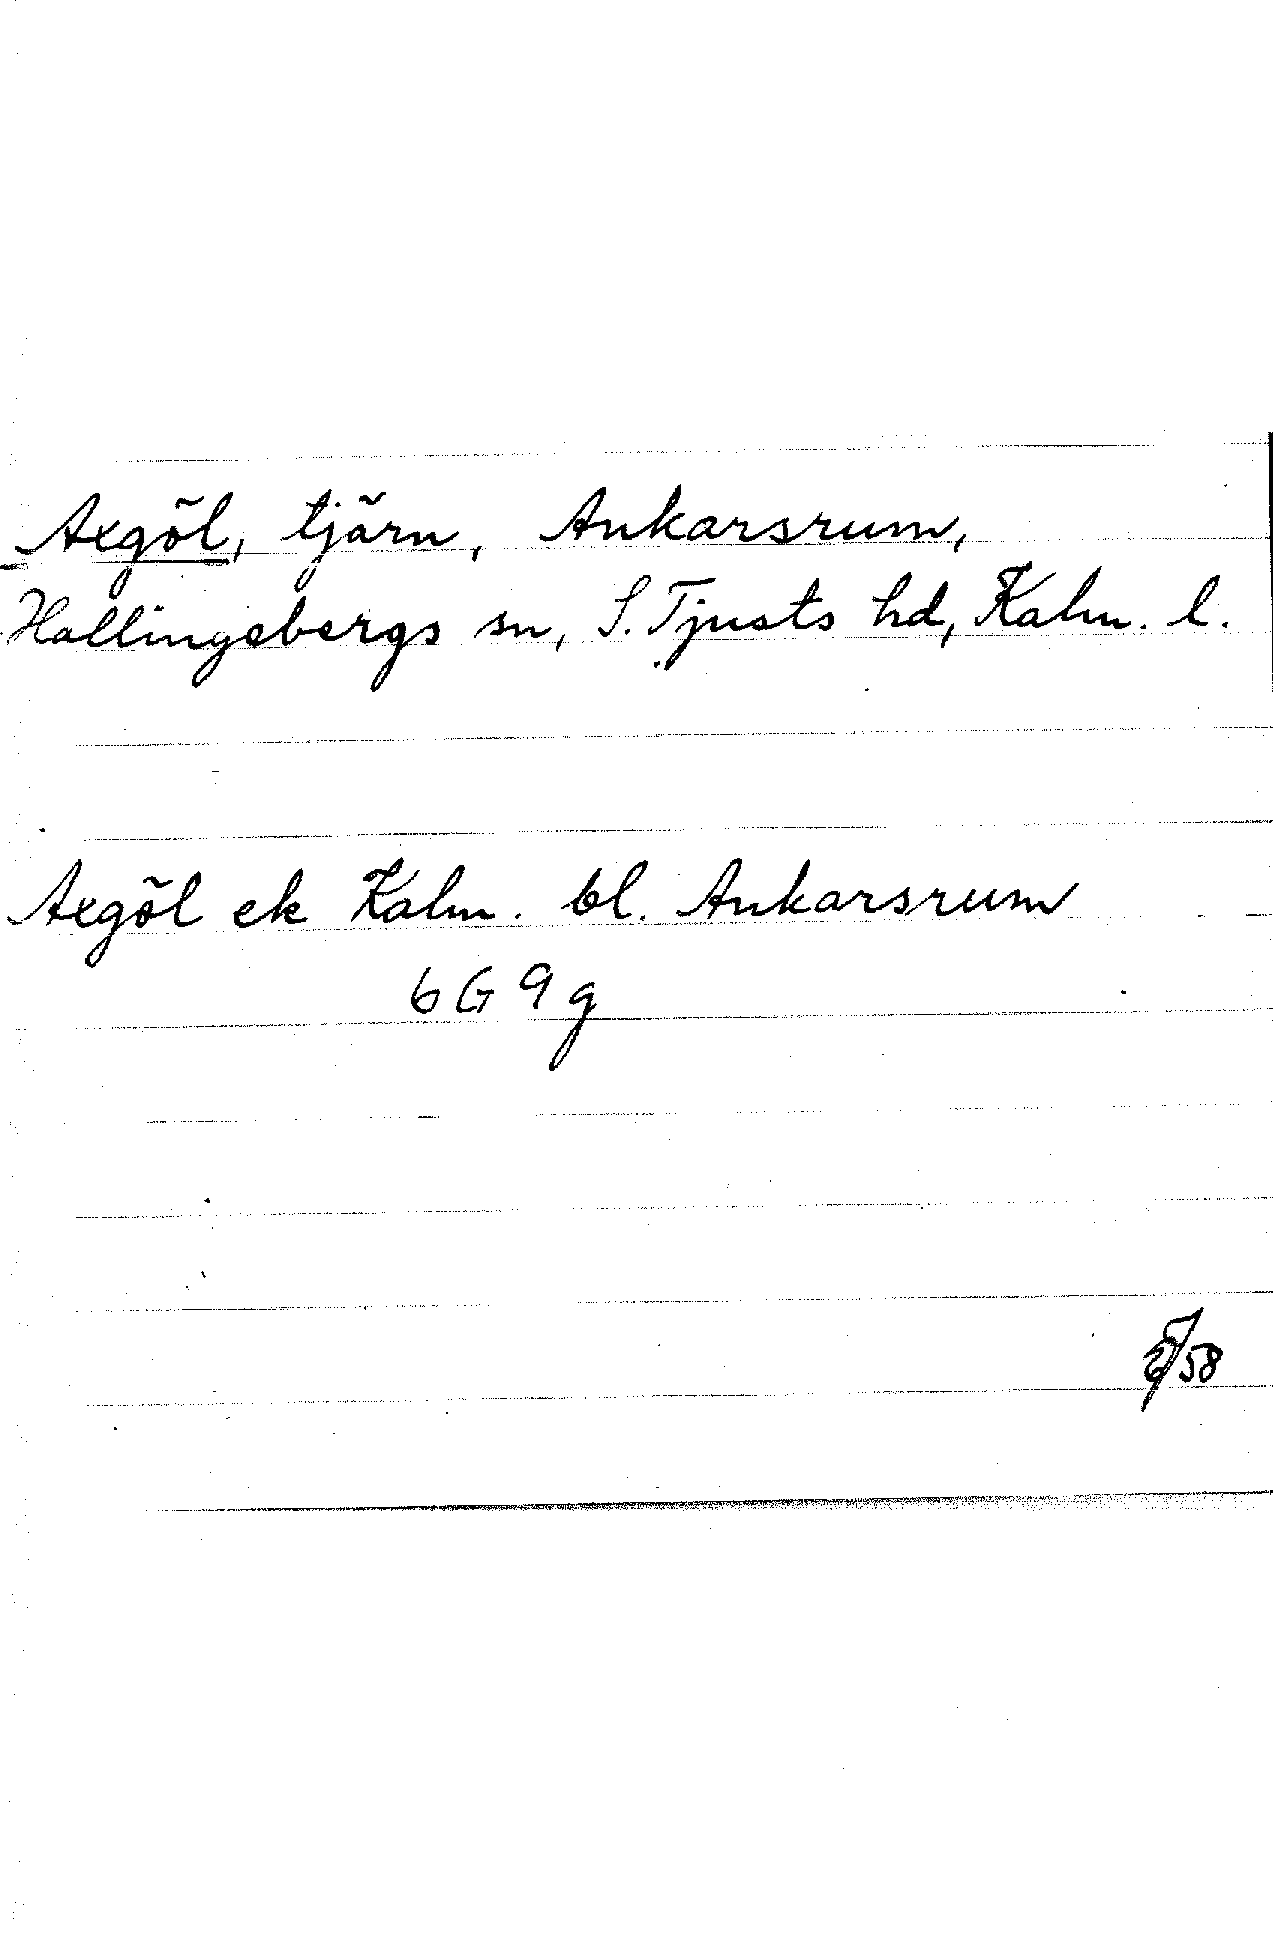 Axgöl, tjärn, Ankarsrum,
Hallingebergs sn, S. Tjusts hd, Kalm. l.
Axgöl ek Kalm. bl. Ankarsrum
6 G 9 g
/58